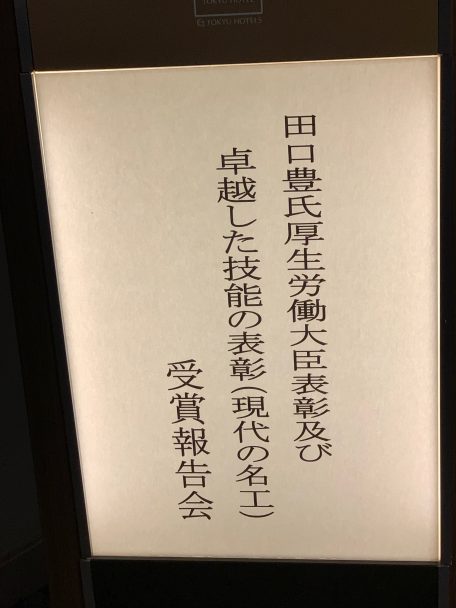 TOKYU HOTELS
田口豊氏厚生労働大臣表彰及び
卓越した技能の表彰(現代の名工)
受賞報告会